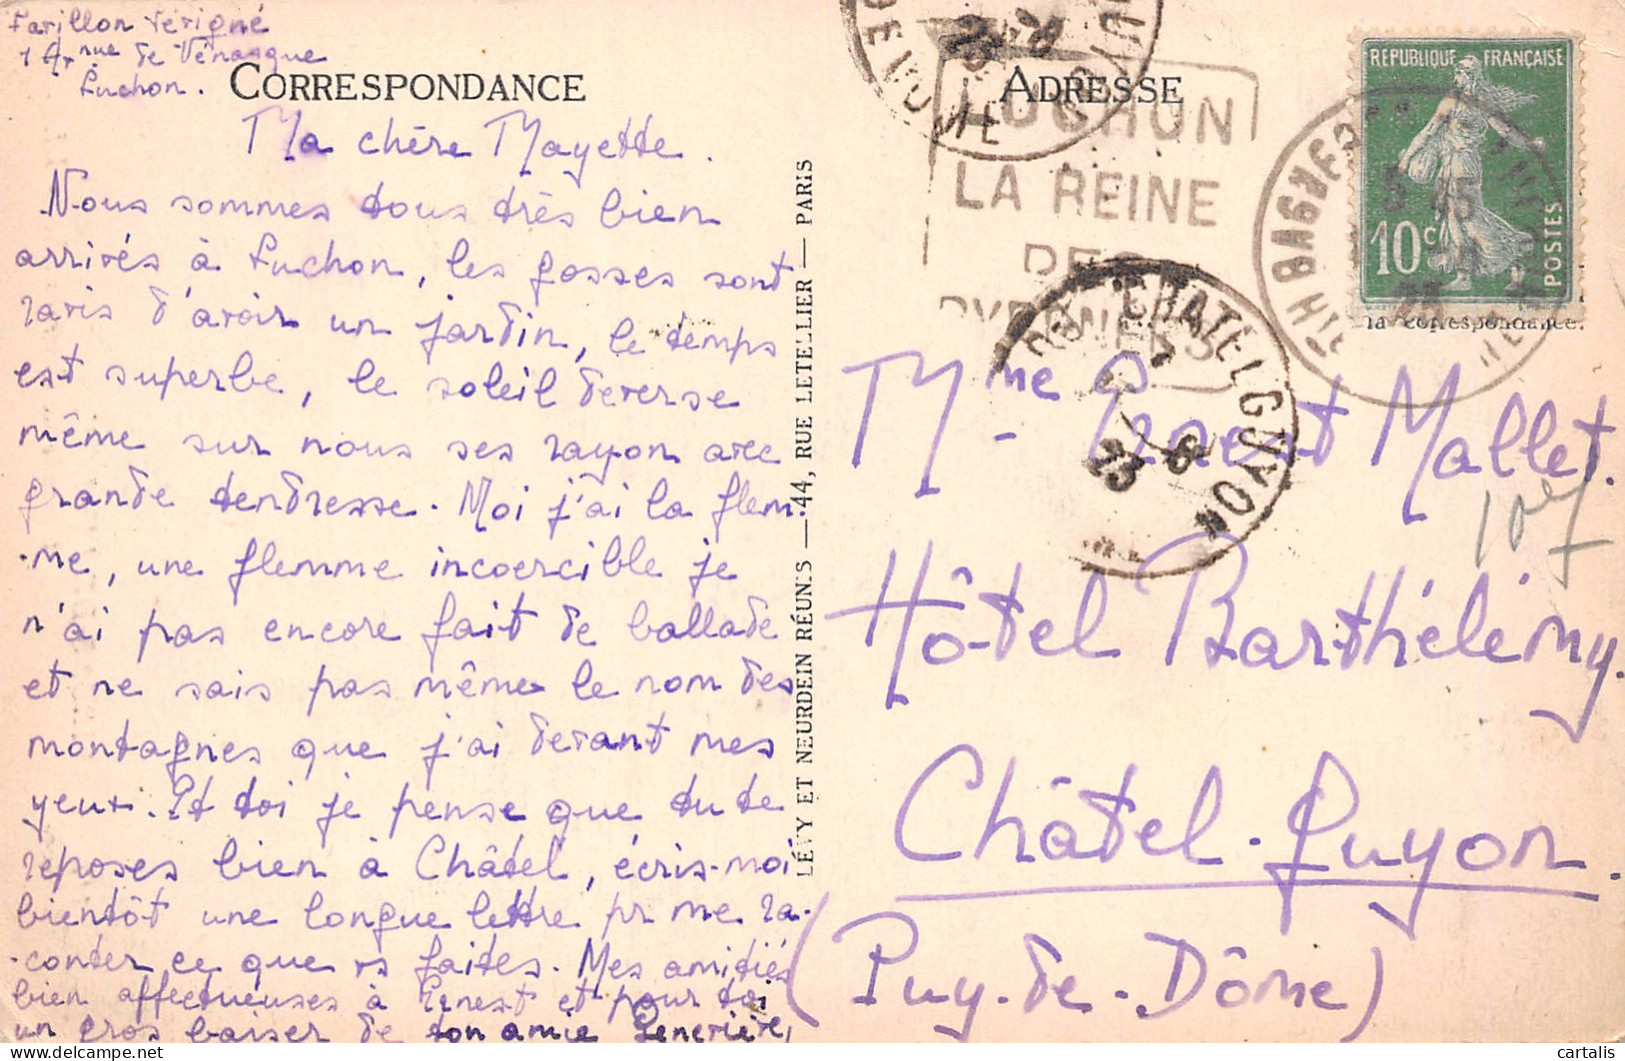 Pavillon Périgné
1 Ar rue de Vénasque
Luchon.
CORRESPONDANCE
Ma chère Mayette.
Nous sommes tous très bien
arrivés à Luchon, les gosses sont
ravis d'avoir un jardin, le temps
est superbe, le soleil deverse
même sur nous ses rayon avec
grande tendresse. Moi j'ai la flem-
-me, une flemme incoercible je
n'ai pas encore fait de ballade
et ne sais pas même le nom des
montagnes que j'ai devant mes
yeux. Et toi je pense que tu te
reposes bien à Châtel, écris-moi
bientôt une longue lettre pr me ra-
-conter ce que vs faites. Mes amitiés
bien affectueuses à Ernest et pour toi
un gros baiser de ton amie Geneviève,
LÉVY ET NEURDEIN RÉUNIS — 44, RUE LETELLIER — PARIS
ADRESSE
LUCHON
LA REINE
DES
PYRENEES
PUY DE DOME
23 -8
BAGNERES
Hte GARONNE
CHATELGUYON
23 8
REPUBLIQUE FRANÇAISE
10c
POSTES
la correspondance.
Mme Ernest Mallet.
Hôtel Barthélémy.
Châtel-Guyon.
(Puy-de-Dôme)
cartalis